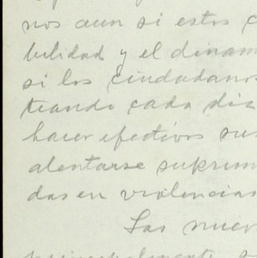 nos aun si estos c
bilidad y el dinam
si los ciudadanos
teando cada día
hacer efectivos sus
alentarse suprim
das en violencias
Las nuev